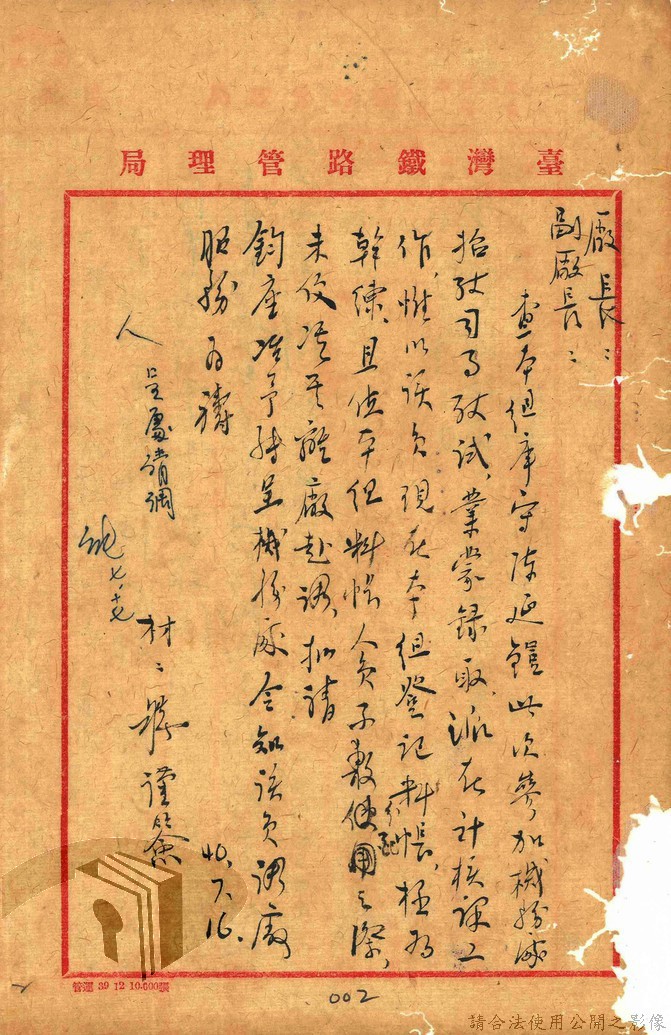 臺灣鐵路管理局
廠長:
副廠長:
查本組庫守陳延鎧此次參加機務處
招考司事考試,業蒙錄取,派在計核課工
作,惟以該員現在本組登記料帳,極為
幹練,且值本組料帳人員不敷使用之際,
未便准其離廠赴調,擬請
鈞座准予轉呈機務處令知該員調廠
服務為禱
呈處請調
七.十七
材
謹簽
40.7.16.
管運 39 12 10.000張
002
請合法使用公開之影像